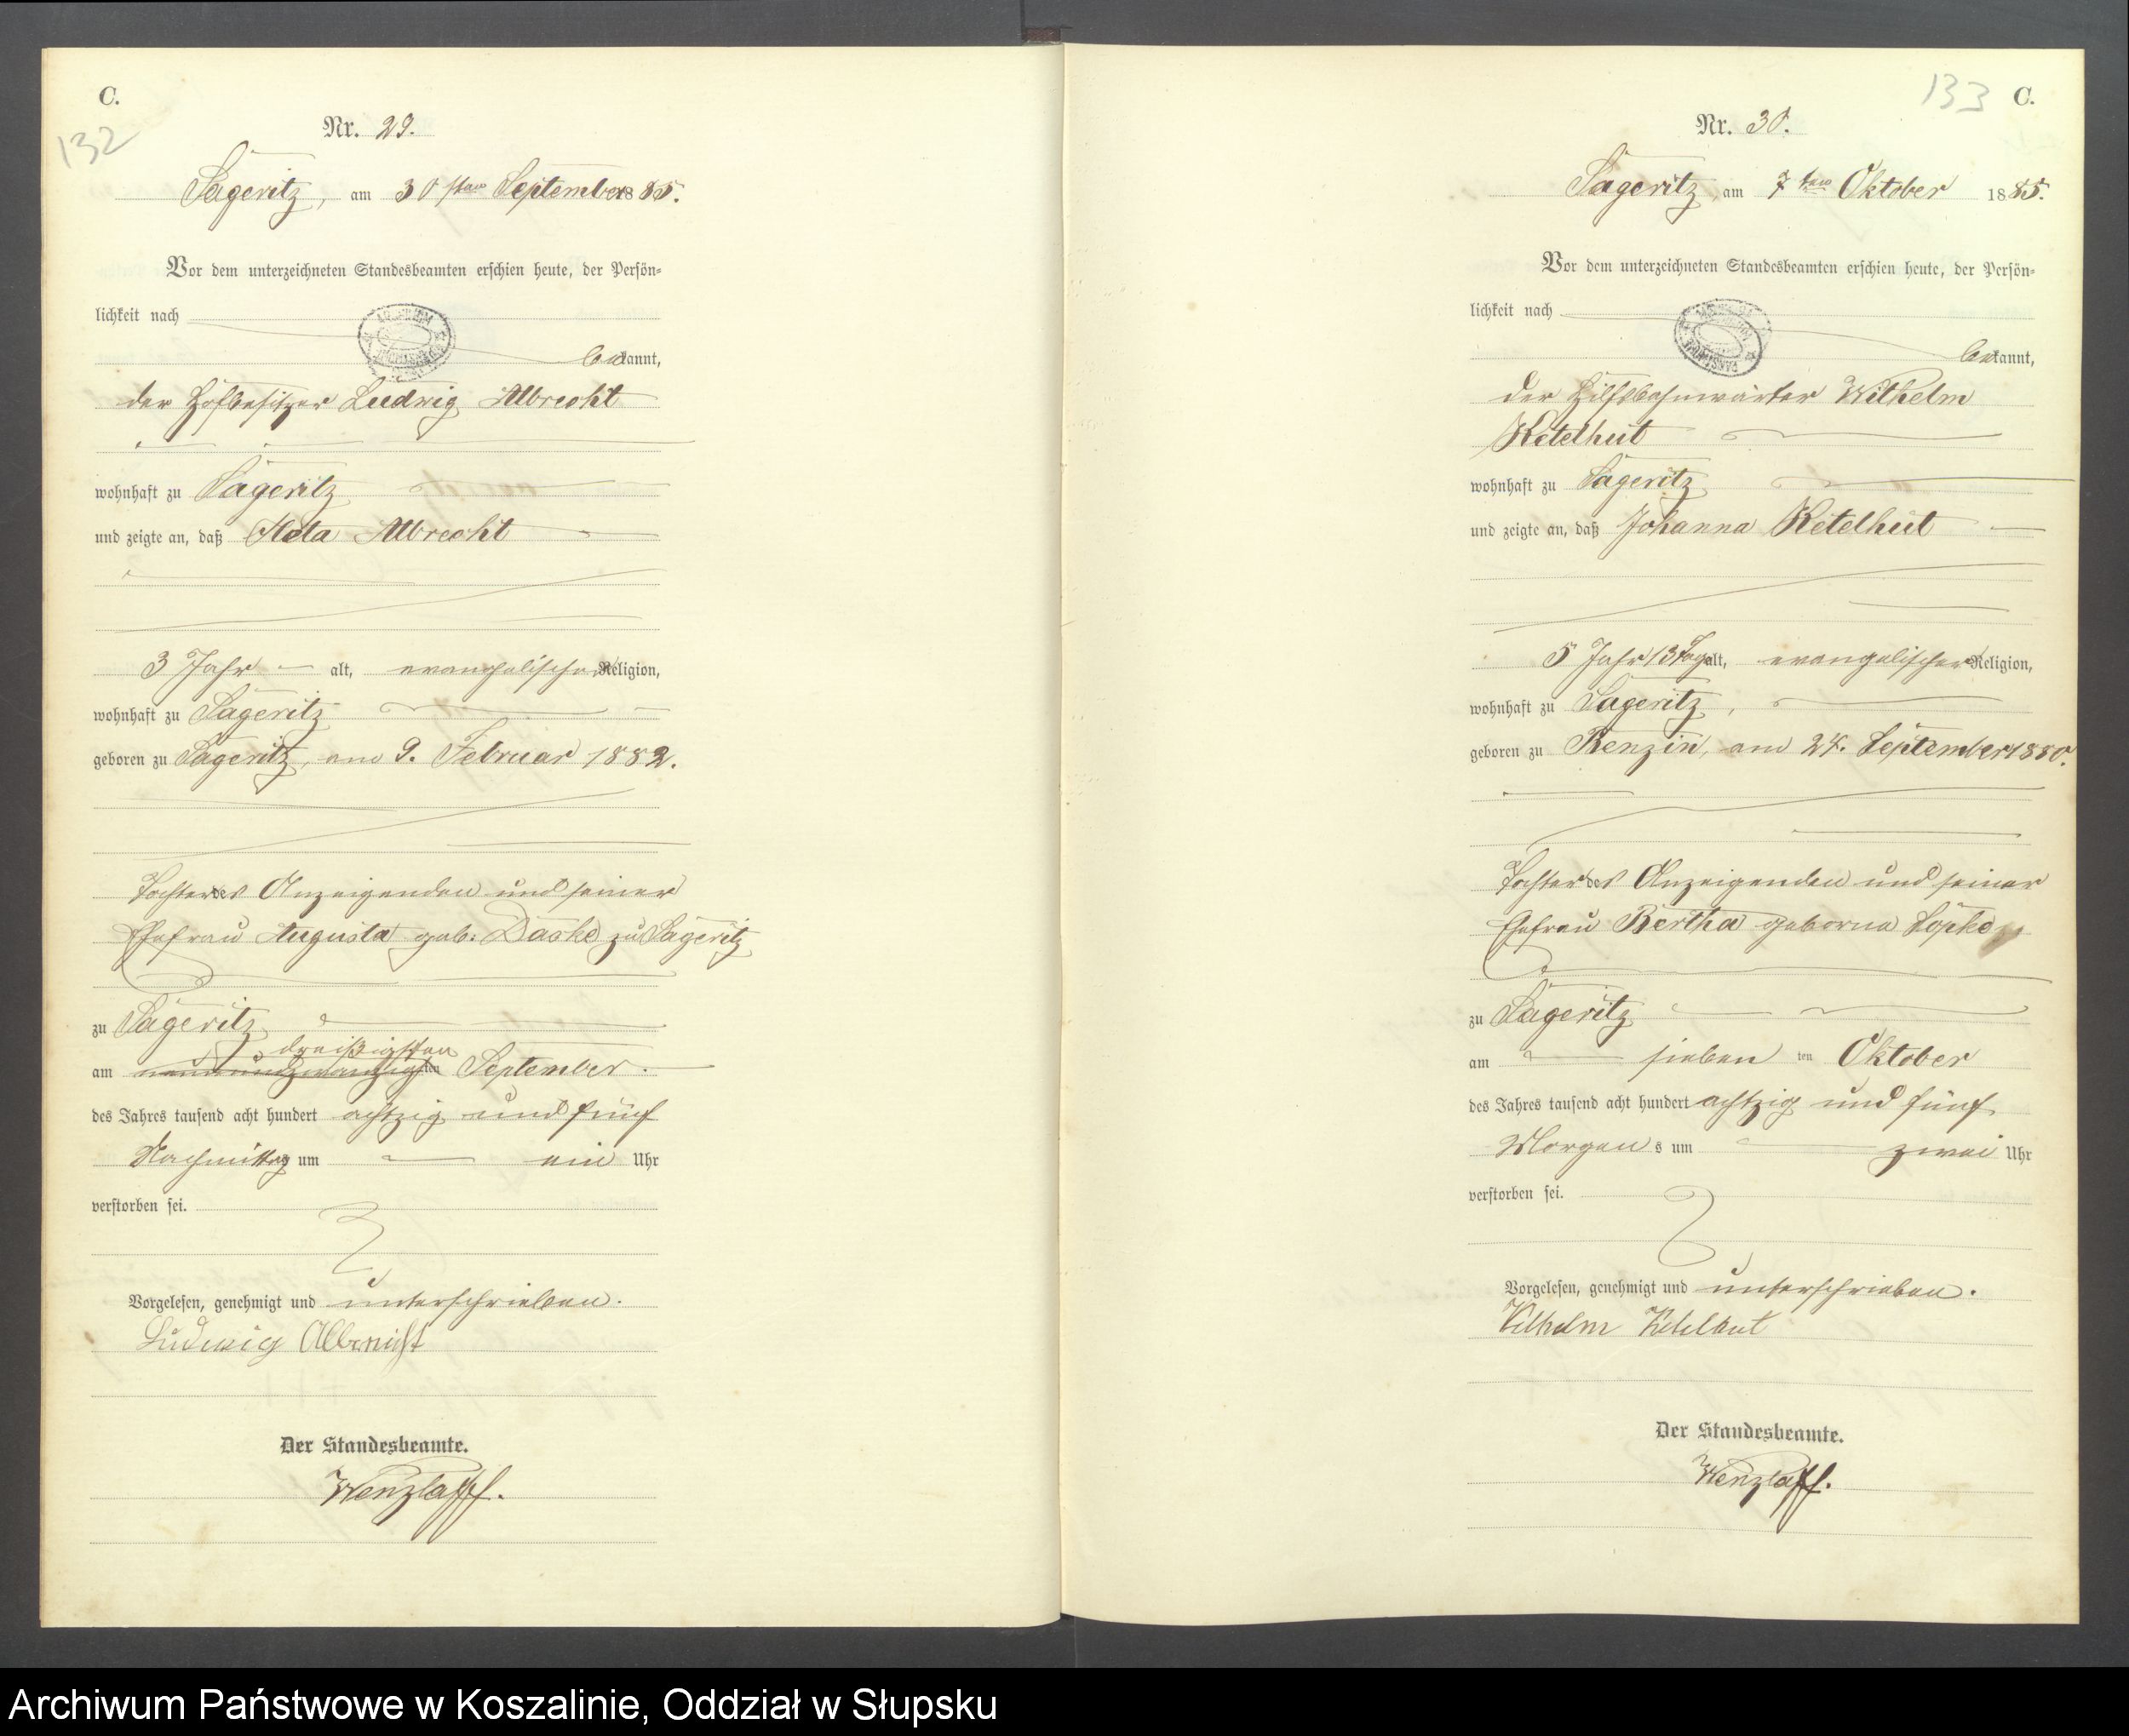 C.
132
Nr. 29.
Sageritz, am 30 sten September 1885.
Vor dem unterzeichneten Standesbeamten erschien heute, der Persön-
lichkeit nach
bekannt,
der Hofbesitzer Ludwig Albrecht
wohnhaft zu Sageritz
und zeigte an, daß Albrecht
3 Jahr alt, evangelischer Religion,
wohnhaft zu Sageritz
geboren zu Sageritz, am 9. Februar 1882.
Tochter des Anzeigenden und seiner
Ehefrau Augusta geb. Daske zu Sageritz
zu Sageritz
dreißigsten
am neunundzwanzigsten September.
des Jahres tausend acht hundert achtzig und fünf
Nachmittag um ein Uhr
verstorben sei.
Vorgelesen, genehmigt und unterschrieben.
Ludwig Albrecht
Der Standesbeamte.
Wenzlaff.
133 C.
Nr. 30.
Sageritz, am 7 ten Oktober 1885.
Vor dem unterzeichneten Standesbeamten erschien heute, der Persön-
lichkeit nach
bekannt,
der Hilfsbahnwärter Wilhelm
Ketelhut
wohnhaft zu Sageritz
und zeigte an, daß Johanna Ketelhut
5 Jahr 13 Tage alt, evangelischer Religion,
wohnhaft zu Sageritz,
geboren zu Renzin, am 24. September 1880.
Tochter des Anzeigenden und seiner
Ehefrau Bertha geborne Köpke
zu Sageritz
am sieben ten Oktober
des Jahres tausend acht hundert achtzig und fünf
Morgens um zwei Uhr
verstorben sei.
Vorgelesen, genehmigt und unterschrieben.
Wilhelm Ketelhut
Der Standesbeamte.
Wenzlaff.
Archiwum Państwowe w Koszalinie, Oddział w Słupsku